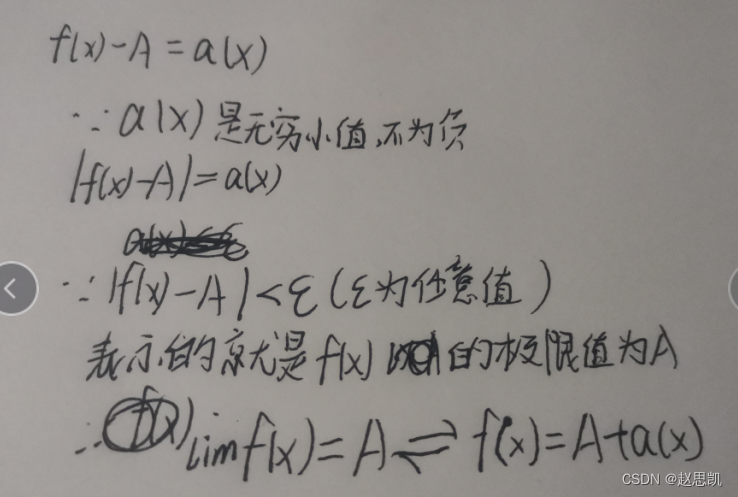 f(x)-A=a(x)
∵a(x)是无穷小值,不为负
|f(x)-A|=a(x)
∵|f(x)-A|<ε(ε为任意值)
表示的就是f(x)的极限值为A
∴limf(x)=A⇌f(x)=A+a(x)
CSDN @赵思凯